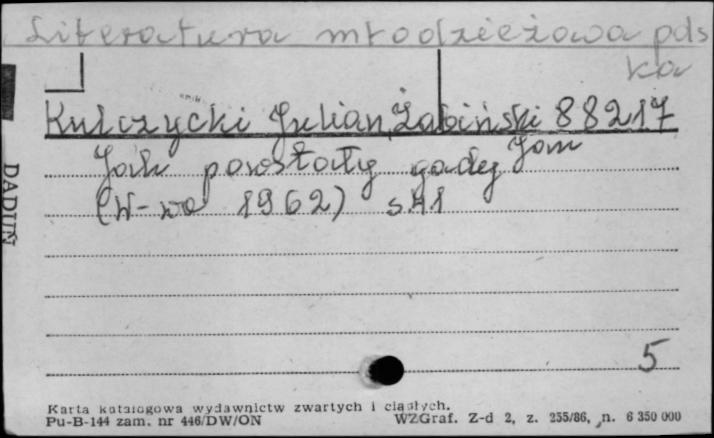 Literatura młodzieżowa pols
ka
Kulczycki Julian, Żabiński 88217
Jan
Jak powstały gady
(W-wa 1962) s. 41
5
DADUŃ
Karta katalogowa wydawnictw zwartych i ciągłych.
Pu-B-144 zam. nr 446/DW/ON WZGraf. Z-d 2, z. 255/86, n. 6 350 000